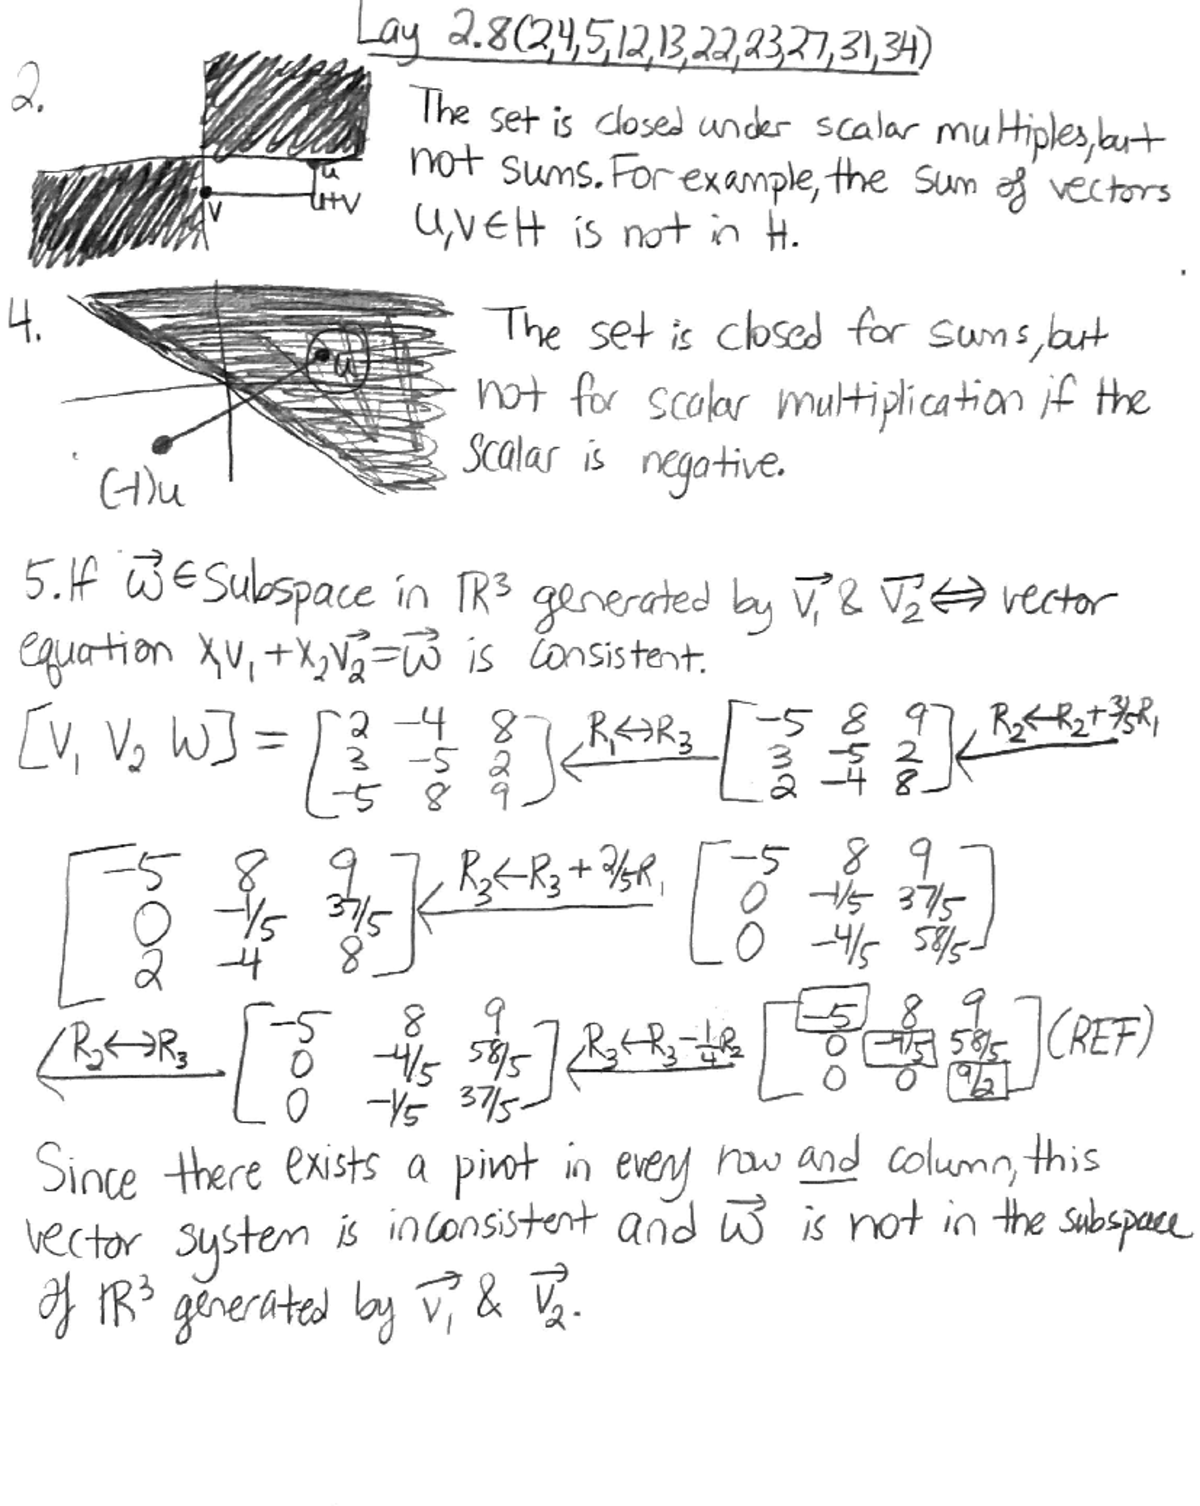 Lay 2.8(2,4,5,12,13,22,23,27,31,34)
2.
The set is closed under scalar multiples, but
not sums. For example, the sum of vectors
u,v∈H is not in H.
u
v
u+v
4.
The set is closed for sums, but
not for scalar multiplication if the
scalar is negative.
u
(-1)u
5. If w⃗ ∈ Subspace in ℝ³ generated by v⃗₁ & v⃗₂ ⟺ vector
equation x₁v₁ + x₂v⃗₂ = w⃗ is consistent.
[v₁ v₂ w] = [2 -4 8; 3 -5 2; -5 8 9] R₁↔R₃ [-5 8 9; 3 -5 2; 2 -4 8] R₂←R₂+3/5R₁
[-5 8 9; 0 -1/5 37/5; 2 -4 8] R₃←R₃+2/5R₁ [-5 8 9; 0 -1/5 37/5; 0 -4/5 58/5]
R₂↔R₃ [-5 8 9; 0 -4/5 58/5; 0 -1/5 37/5] R₃←R₃-1/4R₂ [-5 8 9; 0 -4/5 58/5; 0 0 9/2] (REF)
Since there exists a pivot in every row and column, this
vector system is inconsistent and w⃗ is not in the subspace
of ℝ³ generated by v⃗₁ & v⃗₂.